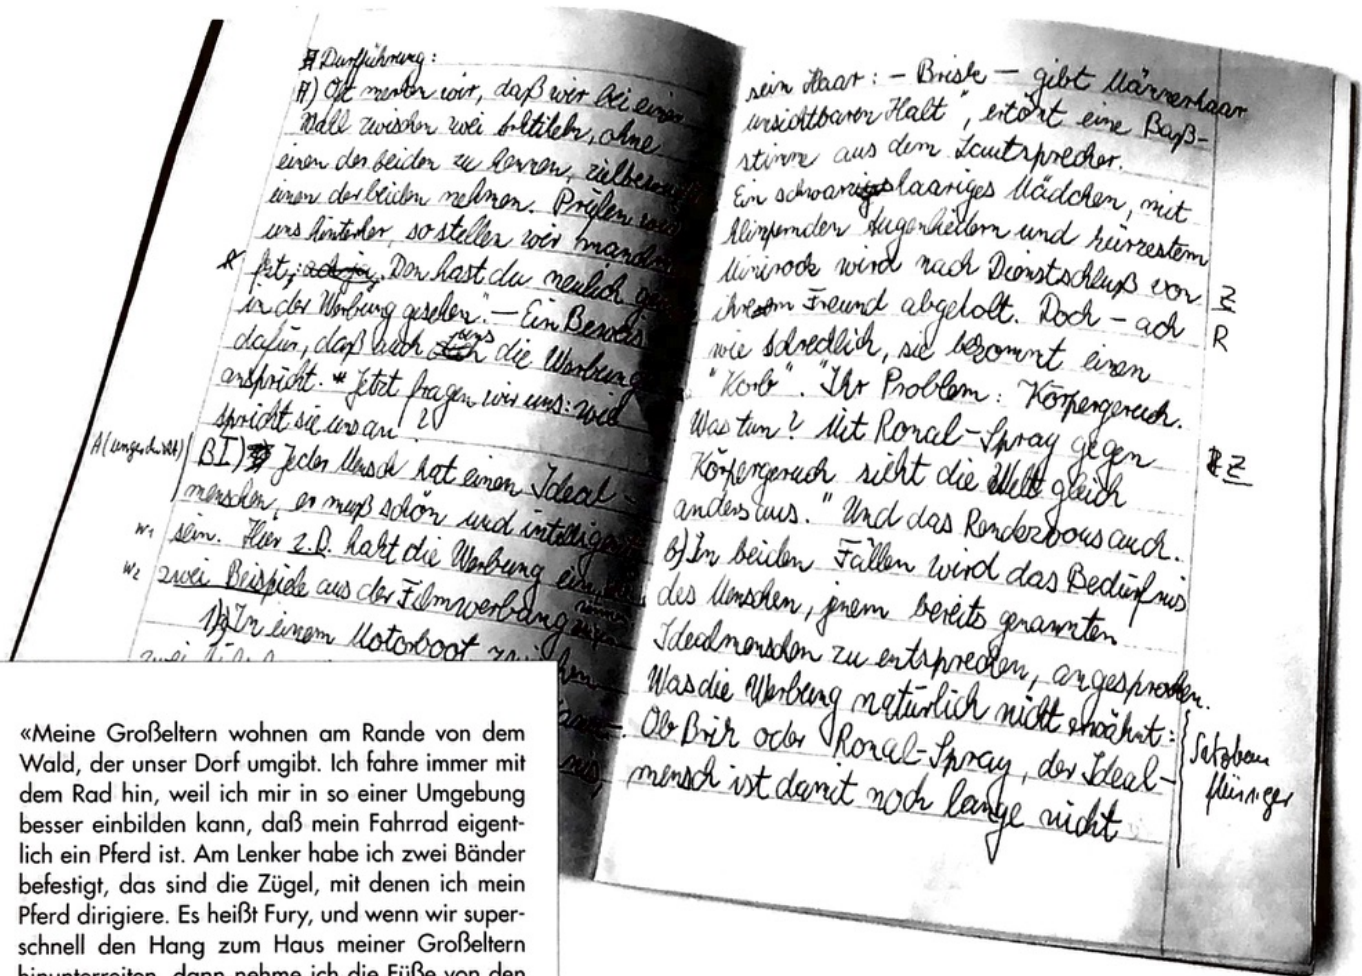 Durchführung:
A) Oft merken wir, daß wir bei einer
Wahl zwischen zwei Artikeln, ohne
einen der beiden zu kennen, zielbewußt
einen der beiden nehmen. Prüfen wir
uns hinterher, so stellen wir
fest: Den hast du neulich
in der Werbung gesehen." – Ein Beweis
dafür, daß auch uns die Werbung
anspricht. Jetzt fragen wir uns: wie
spricht sie uns an?
A (ungeschickt)
BI) Jeder Mensch hat einen Ideal-
menschen, er muß schön und intelligent
W1
sein. Hier z.B. hakt die Werbung ein,
W2
zwei Beispiele aus der Filmwerbung
In einem Motorboot
sein Haar: – Brisk – gibt Männerhaar
unsichtbaren Halt", ertönt eine Baß-
stimme aus dem Lautsprecher.
Ein schwarzhaariges Mädchen, mit
klimpernden Augenliedern und kürzestem
Minirock wird nach Dienstschluß von
Z
ihrem Freund abgeholt. Doch – ach
R
wie schrecklich, sie bekommt einen
"Korb". "Ihr Problem: Körpergeruch.
Was tun? Mit Ronal-Spray gegen
Körpergeruch sieht die Welt gleich
Z
anders aus." Und das Rendezvous auch.
b) In beiden Fällen wird das Bedürfnis
des Menschen, jenem bereits genannten
Idealmenschen zu entsprechen, angesprochen.
Was die Werbung natürlich nicht erwähnt:
Ob Brisk oder Ronal-Spray, der Ideal-
mensch ist damit noch lange nicht
Satzbau
flüssiger
«Meine Großeltern wohnen am Rande von dem
Wald, der unser Dorf umgibt. Ich fahre immer mit
dem Rad hin, weil ich mir in so einer Umgebung
besser einbilden kann, daß mein Fahrrad eigent-
lich ein Pferd ist. Am Lenker habe ich zwei Bänder
befestigt, das sind die Zügel, mit denen ich mein
Pferd dirigiere. Es heißt Fury, und wenn wir super-
schnell den Hang zum Haus meiner Großeltern
hinunterreiten, dann nehme ich die Füße von den